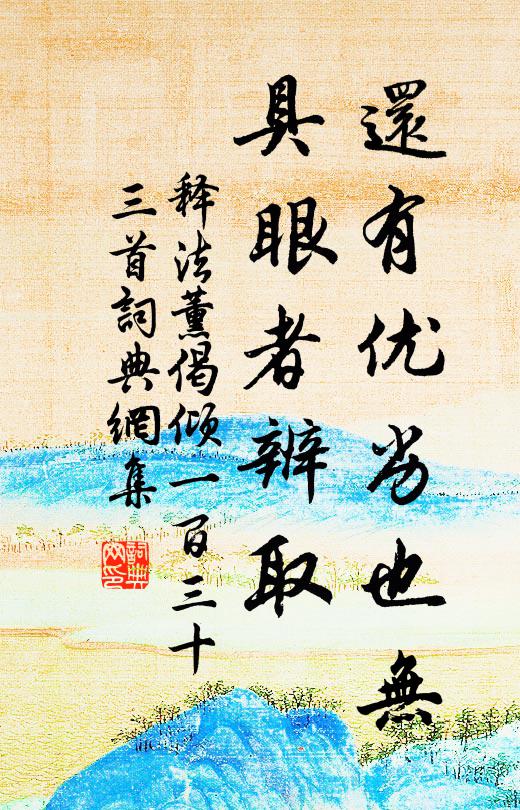 還有优劣也無
具眼者辨取
释法薰偈倾一百三十
三首詞典網集
詞典
网印